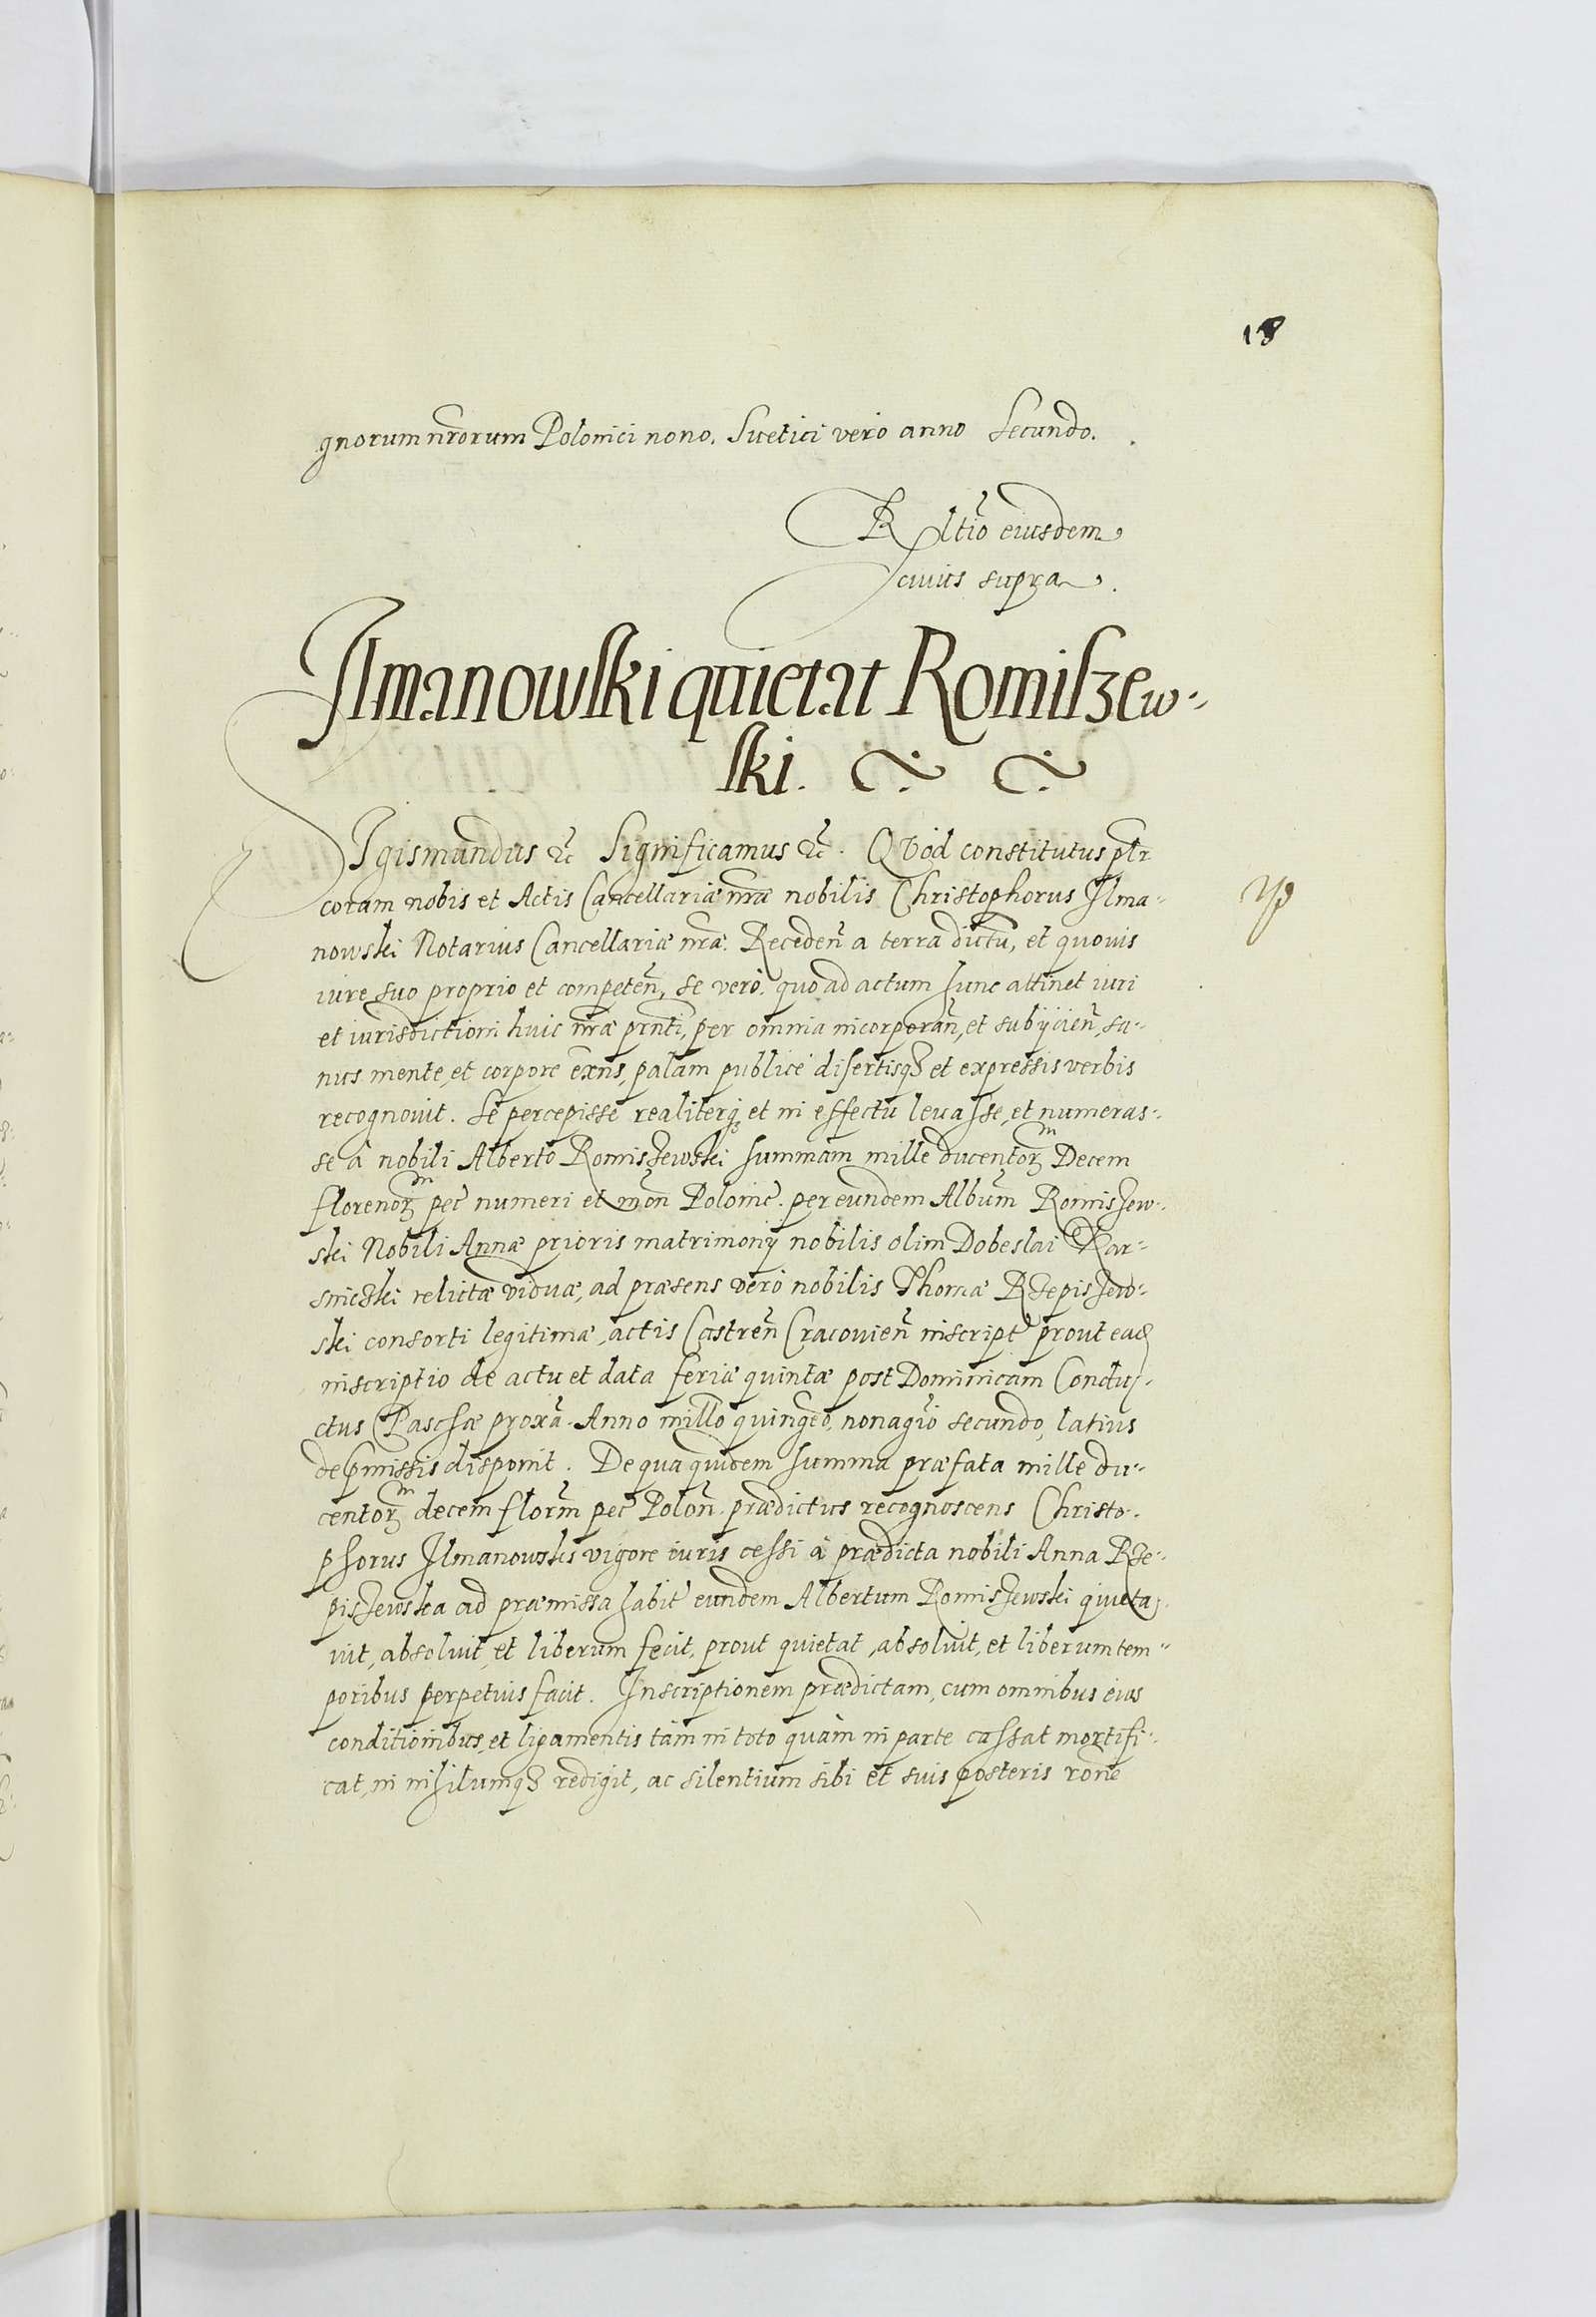 18
gnorum nr̃orum Polonici nono. Suetici vero anno Secundo.
Rltio eiusdem
cuius supra.
Ilmanowski quietat Romiszew-
ski.
Sigismundus &c Significamus &c. Quod constitutus pltr
coram nobis et Actis Cancellariæ nr̃æ nobilis Christophorus Ilma-
nowski Notarius Cancellariæ nr̃æ. Receden̄ a terra dictū, et quovis
iure suo proprio et competen̄, se vero, quo ad actum hunc attinet iuri
et iurisdictioni huic nr̃æ prn̄ti, per omnia incorporan̄, et subijcien̄, sa-
nus mente, et corpore exn̄s, palam publice disertisq3 et expressis verbis
recognovit. Se percepisse realiterq3 et in effectu levasse, et numeras-
se à nobili Alberto Romiszewski summam mille ducentorm Decem
florenorm pec numeri et mon̄ Polonic. per eundem Albūm Romiszew-
ski Nobili Annæ prioris matrimonij nobilis olim Dobeslai Kar-
smicski relictæ viduæ, ad præsens vero nobilis Thomæ Rzepiszew-
ski consorti legitimæ, actis Castren̄ Cracovien̄ inscript prout eadē
inscriptio de actu et data feriæ quintæ post Dominicam Condu-
ctus Paschæ proxã. Anno millo quingeo, nonagio secundo, latius
de p̄missis disponit. De qua quidem summa præfata mille du-
centorm decem florm̄ pec Polon̄. prædictus recognoscens Christo-
phorus Ilmanowski vigore iuris cessi à prædicta nobili Anna Rze-
piszewska ad præmissa habit eundem Albertum Romiszewski quieta-
vit, absolvit, et liberum fecit, prout quietat, absolvit, et liberum tem-
poribus perpetuis facit. Inscriptionem prædictam, cum omnibus eius
conditionibus, et ligamentis tàm in toto quàm in parte cassat mortifi-
cat, in nihilumq3 redigit, ac silentium sibi et suis posteris rone